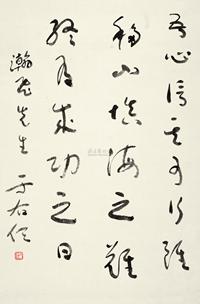 吾心信其可行雖
移山填海之難
終有成功之日
瀚若先生 于右任